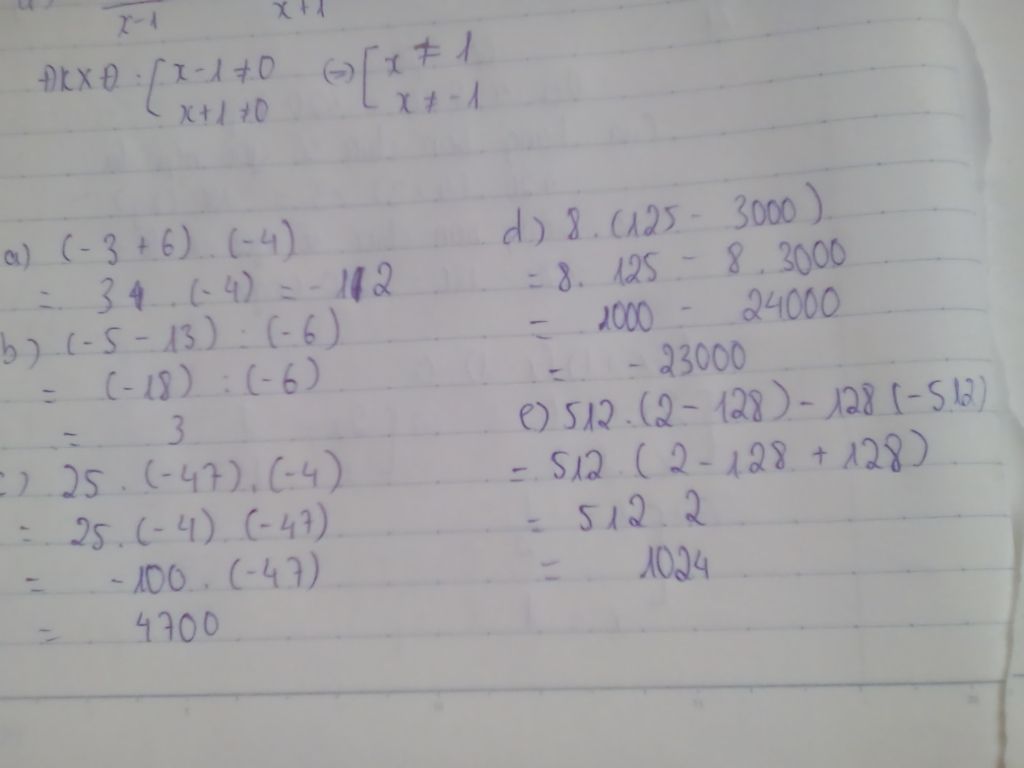 x-1 x+1
ĐKXĐ: { x-1≠0 (=) [ x ≠ 1
x+1≠0 x ≠ -1
a) (-3+6).(-4)
= 3 . (-4) = -12
b) (-5-13) : (-6)
= (-18) : (-6)
= 3
c) 25.(-47).(-4)
= 25.(-4) (-47)
= -100.(-47)
= 4700
d) 8.(125- 3000)
=8. 125 - 8.3000
= 1000 - 24000
= -23000
e) 512.(2-128)-128(-512)
= 512.(2-128+128)
= 512.2
= 1024